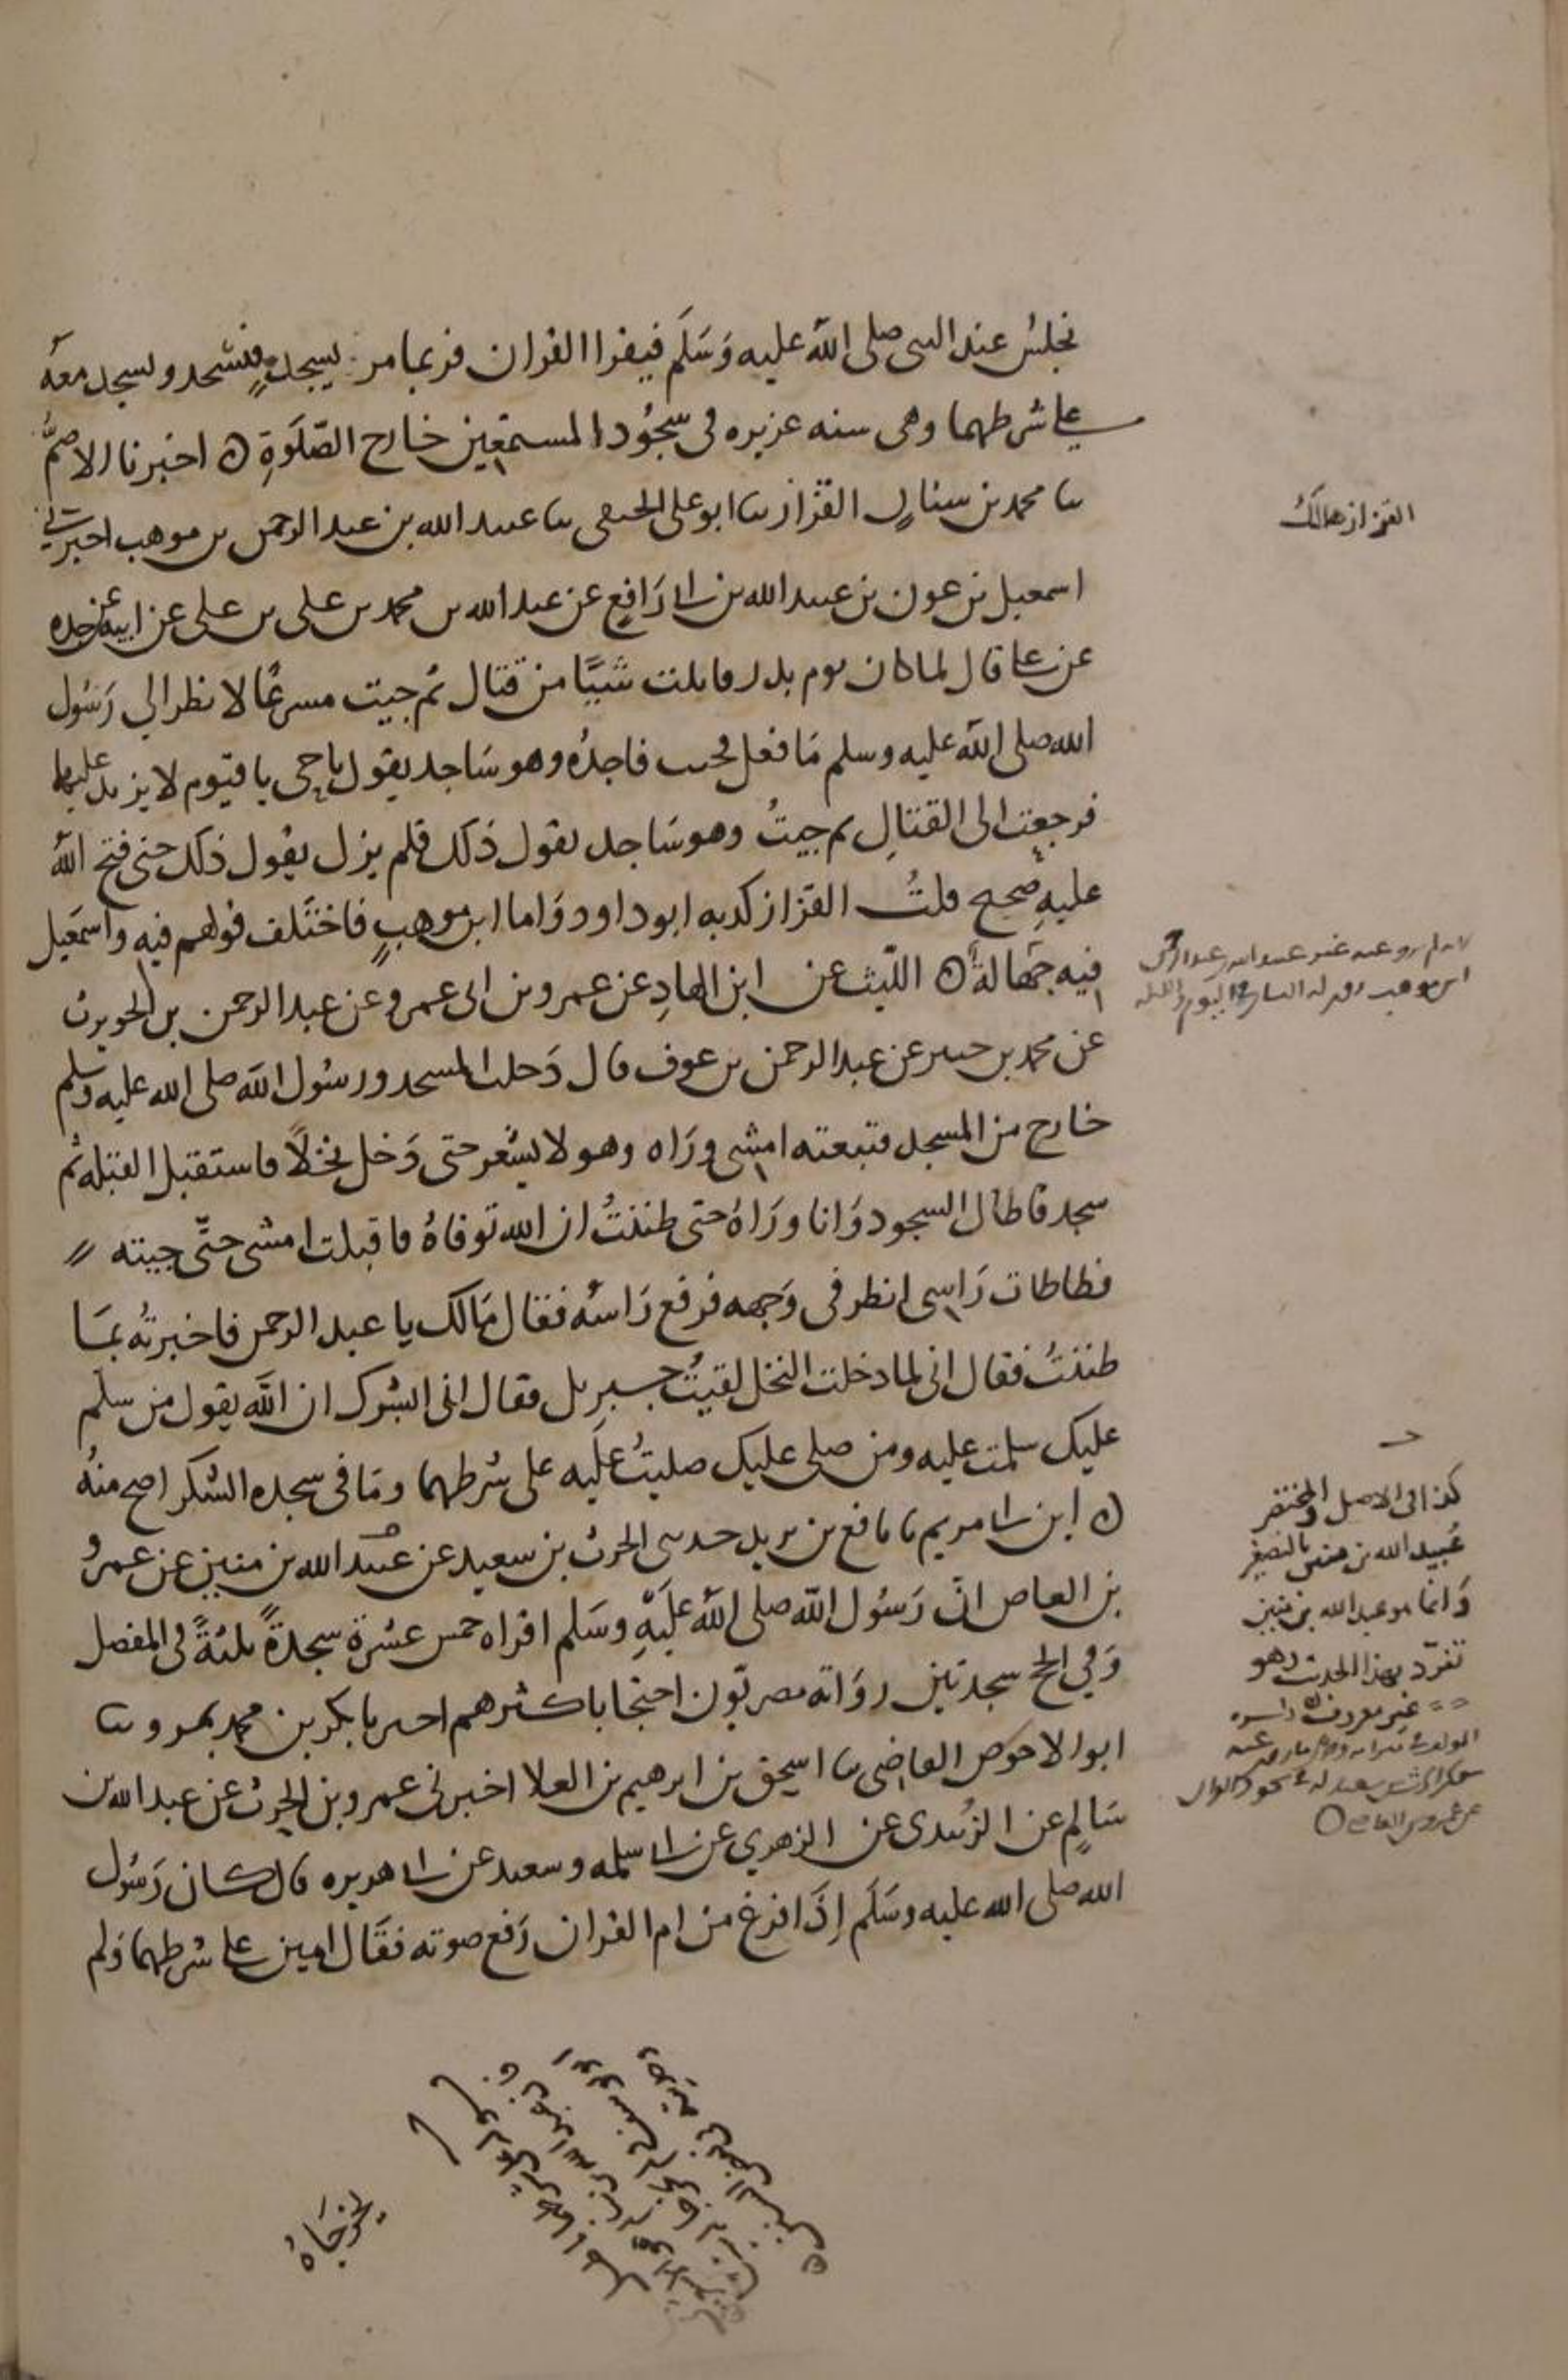 نجلس عند النبى صلى الله عليه وَسَلَم فيقرا القران فربما مر بسجدةٍ فنسجد ونسجد معه
على شرطهما وهى سنه عزيزه فى سجُود المستمعين خارج الصَّلَوةِ ٥ اخبرنا الاصمُّ
سا محمد بن سنان القزاز سا ابو على الحنفى سا عبيد الله بن عبد الرحمن بن موهب اخبرنى
اسمعيل بن عون بن عبيد الله بن ابى رَافعٍ عن عبد الله بن محمد بن على بن على عن ابيه عن جده
عن على قال لما كان يوم بدر قاتلت شيًا من قتال ثم جيت مسرعًا لانظر الي رَسُول
الله صلى الله عليه وسلم مَا فعل فجيت فاجدُه وهو سَاجد يقول يا حى يا قيوم لا يزيد عليهما
فرجعت الى القتالِ ثم جيتُ وهو سَاجد يقول ذلك فلم يزل يقول ذلك حتى فتح الله
عليهِ صحيح قلتُ القزاز كذبه ابو داود وَاما ابن موهبٍ فاختَلف قولهم فيه واسمَعيل
فيه جَهَالةٌ ٥ الليث عن ابن الهادِ عن عمرو بن ابى عمرو عن عبد الرحمن بن الحويرث
عن محمد بن جبير عن عبد الرحمن بن عوف قال دَخلت المسجد ورسُول الله صلى الله عليه وسلم
خارج من المسجد فتبعته امشى ورَاه وهو لا يشعر حتى دَخل نخلًا فاستقبل القبله ثم
سجد فاطال السجود وَانا ورَاهُ حتى ظننتُ ان الله توفاهُ فاقبلت امشى حتّى جيته
فطاطات رَاسى انظر فى وَجهه فرفع رَاسَه فقال مَالك يا عبد الرحمن فاخبرتُه بمَا
ظننتُ فقال انى لما دخلت النخل لقيتُ جبريل فقال انى ابشرك ان الله يقول من سلم
عليك سلمت عليه ومن صلى عليك صليتُ علَيه على شرطهما ومَا فى سجده الشكر اصح منهُ
٥ ابن ابى مريم نا نافع بن يزيد حدثنى الحرث بن سعيد عن عبد الله بن منين عن عمرو
بن العاص انّ رَسُول الله صلى الله علَيهِ وسَلم اقراه خمس عشرة سجدةً ثلثةً فى المفصل
وَفي الحج سجدتين روَاته مصريّون احتجا باكثرهم اخبرنا بكر بن محمد بمرو سا
ابو الاحوَص القاضى سا اسحق بن ابرهيم بن العلا اخبرنى عمرو بن الحرث عن عبد الله بن
سَالمٍ عن الزُبيدى عن الزهري عن ابى سلمه وسعيد عن ابى هريره قال كان رَسُول
الله صلى الله عليه وسَلَم إذَا فرغ من ام القران رَفع صوته فقَال امين على شرطهما وَلم
يخرجَاهُ
القزاز هالكٌ
كذا فى الاصل والمختصر
عُبيد الله بن منين بالتصغير
وَانما هو عبد الله بن منين
تفرّد بهذا الحديث وهو
غير معروف
عن عمرو بن العاص ٥